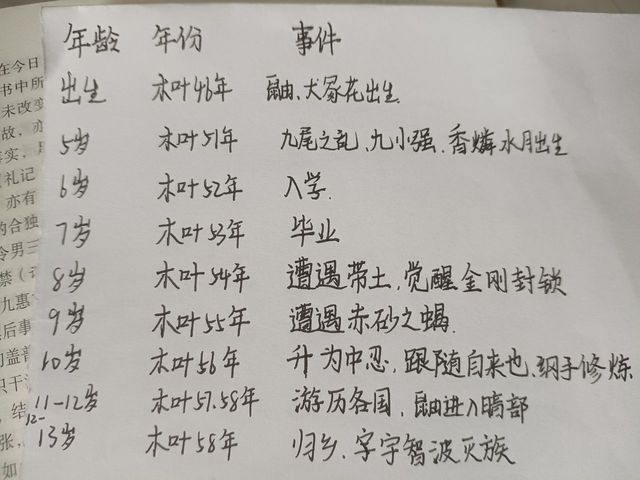 年龄 年份 事件
出生 木叶46年 鼬、犬冢花出生.
5岁 木叶51年 九尾之乱、九小强、香燐水月出生
6岁 木叶52年 入学.
7岁 木叶53年 毕业
8岁 木叶54年 遭遇带土,觉醒金刚封锁
9岁 木叶55年 遭遇赤砂之蝎.
10岁 木叶56年 升为中忍,跟随自来也、纲手修炼
11-12岁 木叶57.58年 游历各国、鼬进入暗部
12-13岁 木叶58年 归乡、字宇智波灭族
在今日
书中所
未改变
故,亦
礼记
亦有
的合独
令男三
九惠
后事
盖普
只干
结
张,
如